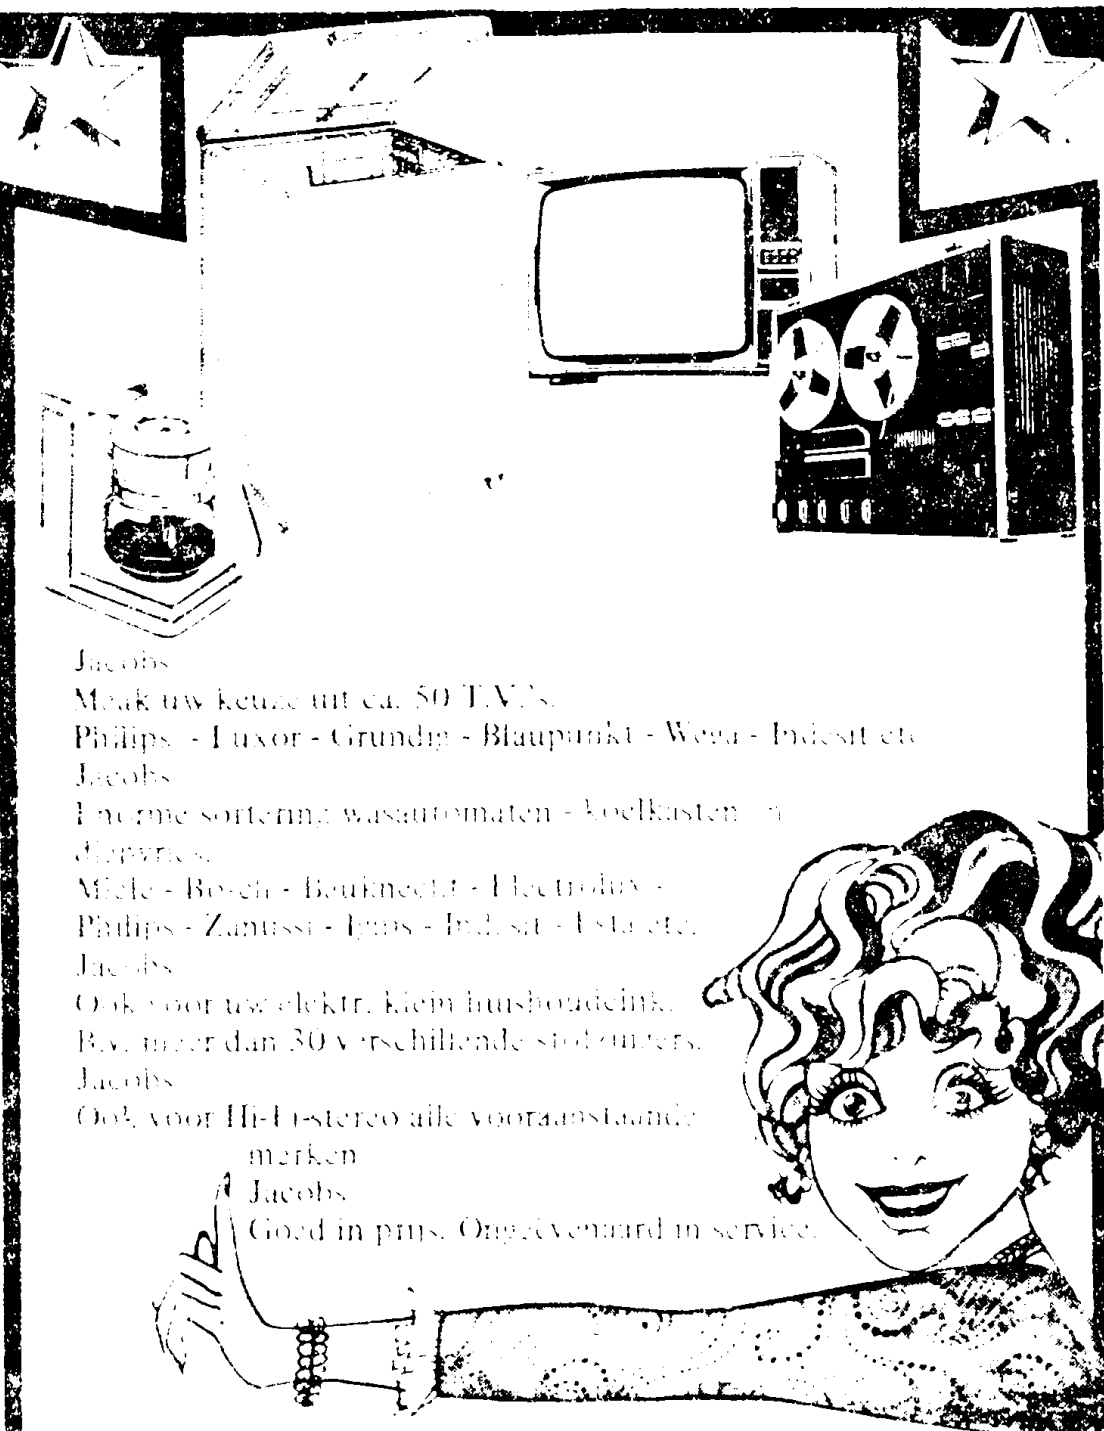 Jacobs
Maak uw keuze uit ca. 50 T.V.'s.
Philips - Luxor - Grundig - Blaupunkt - Wega - Indesit etc
Jacobs
Enorme sortering wasautomaten - koelkasten en
diepvries.
Miele - Bosch - Bauknecht - Electrolux -
Philips - Zanussi - Ignis - Indesit - Esta etc.
Jacobs
Ook voor uw elektr. klein huishoudelink.
B.v. meer dan 30 verschillende stofzuigers.
Jacobs
Ook voor Hi-Fi-stereo alle vooraanstaande
merken
Jacobs
Goed in prijs. Ongeëvenaard in service.